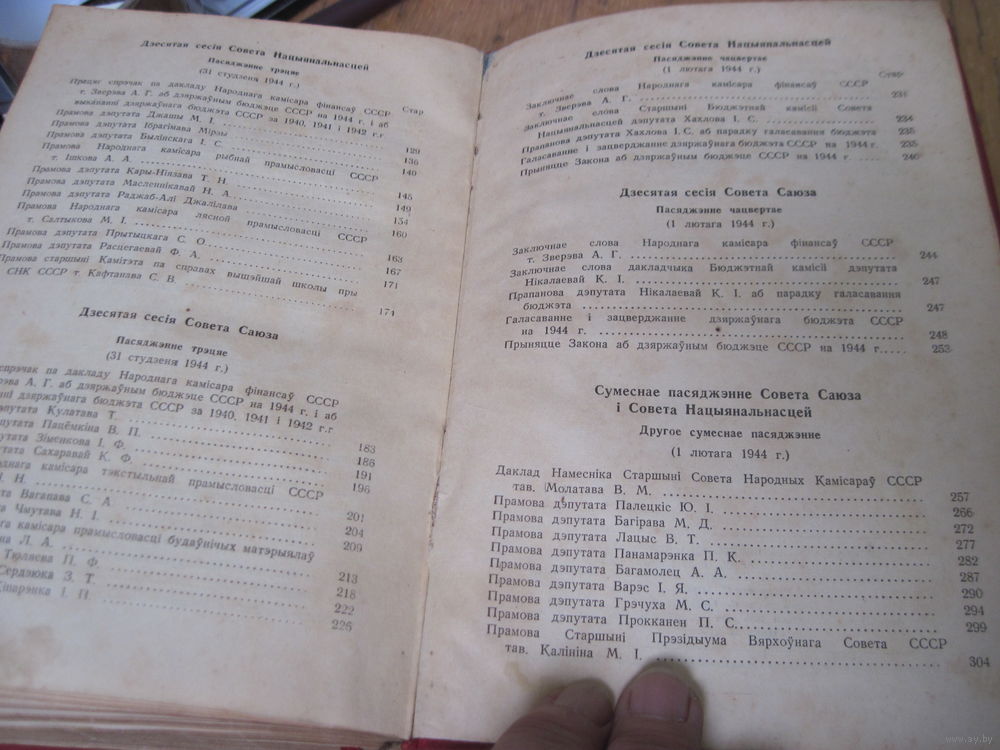 Дзесятая сесія Совета Нацыянальнасцей
Пасяджэнне трэцяе
(31 студзеня 1944 г.)
Стар
Прэцяг спрэчак па дакладу Народнага камісара фінансаў СССР
т. Зверэва А. Г. аб дзяржаўным бюджэце СССР на 1944 г. і аб
выкананні дзяржаўнага бюджэта СССР за 1940, 1941 і 1942 г.г.
Прамова дэпутата Джашы М. І. 129
Прамова дэпутата Ібрагімава Мірзы 136
Прамова дэпутата Былінскага І. С. 140
Прамова Народнага камісара рыбнай прамысловасці СССР
т. Ішкова А. А. 145
Прамова дэпутата Кары-Ніязава Т. Н. 149
Прамова дэпутата Масленнікавай Н. А. 154
Прамова дэпутата Раджаб-Алі Джалілава 160
Прамова Народнага камісара лясной прамысловасці СССР
т. Салтыкова М. І. 163
Прамова дэпутата Прытыцкага С. О. 167
Прамова дэпутата Расцегаевай Ф. А. 171
Прамова старшыні Камітэта па справах вышэйшай школы пры
СНК СССР т. Кафтанава С. В. 174
Дзесятая сесія Совета Саюза
Пасяджэнне трэцяе
(31 студзеня 1944 г.)
спрэчак па дакладу Народнага камісара фінансаў СССР
рэва А. Г. аб дзяржаўным бюджэце СССР на 1944 г. і аб
нні дзяржаўнага бюджэта СССР за 1940, 1941 і 1942 г.г
эпутата Кулатава Т. 183
путата Пацёмкіна В. П. 186
утата Зіменкова І. Ф. 191
тата Сахаравай К. Ф. 196
днага камісара тэкстыльнай прамысловасці СССР
І. Н. 201
та Вагапава С. А. 204
а Чмутава Н. І. 209
га камісара прамысловасці будаўнічых матэрыялаў
на Л. А. 213
Тюляева П. Ф. 218
Сердзюка З. Т. 222
І. П. 226
Дзесятая сесія Совета Нацыянальнасцей
Пасяджэнне чацвертае
(1 лютага 1944 г.)
Стар-
Заключнае слова Народнага камісара фінансаў СССР
т. Зверэва А. Г. 231
Заключнае слова Старшыні Бюджэтнай камісіі Совета
Нацыянальнасцей дэпутата Хахлова І. С. 234
Прапанова дэпутата Хахлова І. С. аб парадку галасавання бюджэта 235
Галасаванне і зацверджанне дзяржаўнага бюджэта СССР на 1944 г. 235
Прыняцце Закона аб дзяржаўным бюджэце СССР на 1944 г. 240
Дзесятая сесія Совета Саюза
Пасяджэнне чацвертае
(1 лютага 1944 г.)
Заключнае слова Народнага камісара фінансаў СССР
т. Зверэва А. Г. 244
Заключнае слова дакладчыка Бюджэтнай камісіі дэпутата
Нікалаевай К. І. 247
Прапанова дэпутата Нікалаевай К. І. аб парадку галасавання
бюджэта 247
Галасаванне і зацверджанне дзяржаўнага бюджэта СССР
на 1944 г. 248
Прыняцце Закона аб дзяржаўным бюджэце СССР на 1944 г. 253
Сумеснае пасяджэнне Совета Саюза
і Совета Нацыянальнасцей
Другое сумеснае пасяджэнне
(1 лютага 1944 г.)
Даклад Намесніка Старшыні Совета Народных Камісараў СССР
тав. Молатава В. М. 257
Прамова дэпутата Палецкіс Ю. І. 266
Прамова дэпутата Багірава М. Д. 272
Прамова дэпутата Лацыс В. Т. 277
Прамова дэпутата Панамарэнка П. К. 282
Прамова дэпутата Багамолец А. А. 287
Прамова дэпутата Варэс І. Я. 290
Прамова дэпутата Грэчуха М. С. 294
Прамова дэпутата Прокканен П. С. 299
Прамова Старшыні Прэзідыума Вярхоўнага Совета СССР
тав. Калініна М. І. 304
www.ay.by